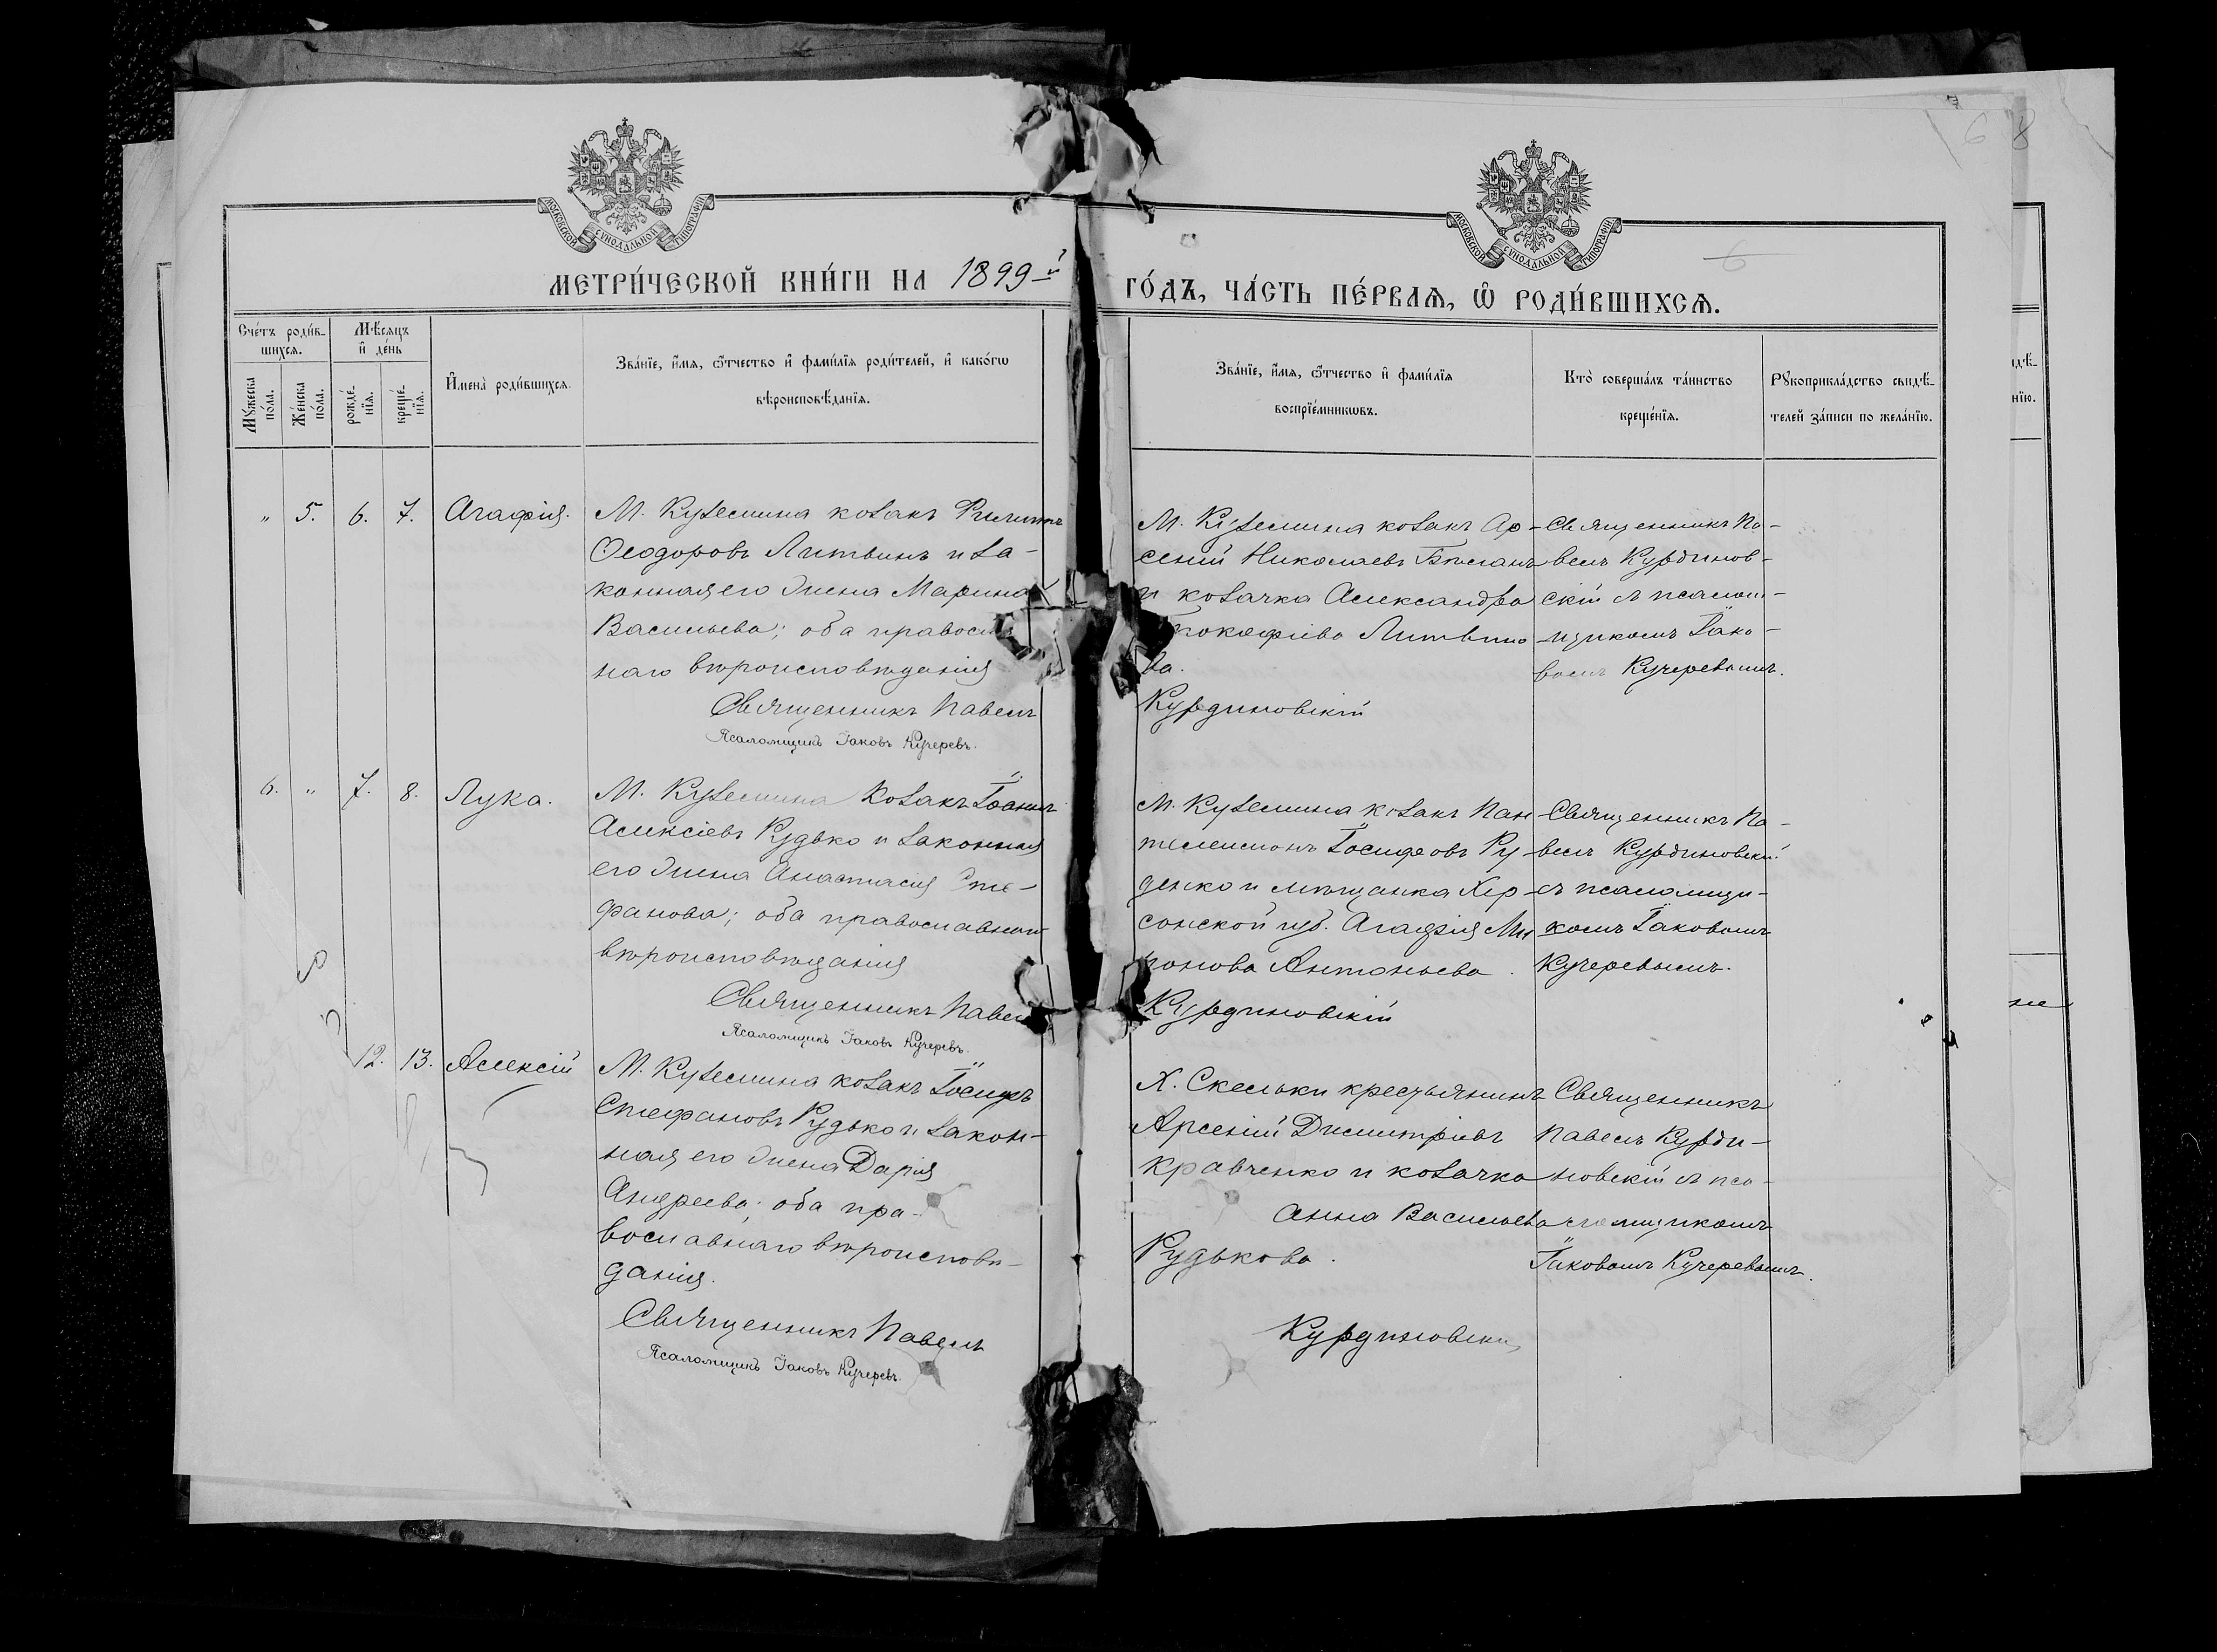 6 8
6
МОСКОВСКОЙ СѴНОДАЛЬНОЙ ТИПОГРАФІИ
МОСКОВСКОЙ СѴНОДАЛЬНОЙ ТИПОГРАФІИ
МЕТРИ́ЧЕСКОЙ КНИ́ГИ НА 1899-й
ГО́ДЪ, ЧА́СТЬ ПЕ́РВАѦ, Ѡ РОДИ́ВШИХСѦ.
Сче́тъ роди́в-
шихсѧ.
Мꙋ́жеска
по́ла.
Же́нска
по́ла.
Мѣ́сѧцъ
и҆ де́нь
рожде́-
нїѧ.
креще́-
нїѧ.
И҆мена̀ роди́вшихсѧ.
Зва́нїе, и҆́мѧ, ѻ҆́тчество и҆ фами́лїѧ роди́телей, и҆ како́гѡ
вѣроисповѣ́данїѧ.
Зва́нїе, и҆́мѧ, ѻ҆́тчество и҆ фами́лїѧ
воспрїе́мникѡвъ.
Кто̀ соверша́лъ та́инство
креще́нїѧ.
Рꙋкоприкла́дство свидѣ́-
телей за́писи по жела́нїю.
" 5. 6. 7. Агафія.
М. Куземина козакъ Филиппъ
Ѳеодоровъ Литвинъ и за-
конная его жена Марина
Васильева; оба правосла
наго вѣроисповѣданія
Священникъ Павелъ
Псаломщикъ Іаковъ Кучеревъ.
М. Куземина козакъ Ар-
сеній Николаевъ
и козачка Александра
рокофіева Литвино
ва.
Курдиновскій
Священникъ Па-
велъ Курдинов-
скій съ псалом-
щикомъ Іако-
вомъ Кучеревымъ.
6. " 7. 8. Лука.
М. Куземина козакъ Іоаннъ
Алексіевъ Рудько и законная
его жена Анастасія Сте-
фанова; оба православнаго
вѣроисповѣданія
Священникъ Павелъ
Псаломщикъ Іаковъ Кучеревъ.
М. Куземина козакъ Пан
телеимонъ Іосифовъ Ру-
денко и мѣщанка Хер-
сонской губ. Агафія Ми
ронова Антоньева.
Курдиновскій
Священникъ Па-
велъ Курдиновскій
съ псаломщи-
комъ Іаковомъ
Кучеревымъ.
12. 13. Алексій
М. Куземина козакъ Іосифъ
Стефановъ Рудько и закон-
ная его жена Дарія
Андреева; оба пра-
вославнаго вѣроисповѣ-
данія.
Священникъ Павелъ
Псаломщикъ Іаковъ Кучеревъ.
Х. Скельки крестьянинъ
Арсеній Димитріевъ
Кравченко и козачка
Анна Васильева
Рудькова.
Курдиновскій
Священникъ
Павелъ Курди-
новскій съ пса-
ломщикомъ
Іаковомъ Кучеревымъ.